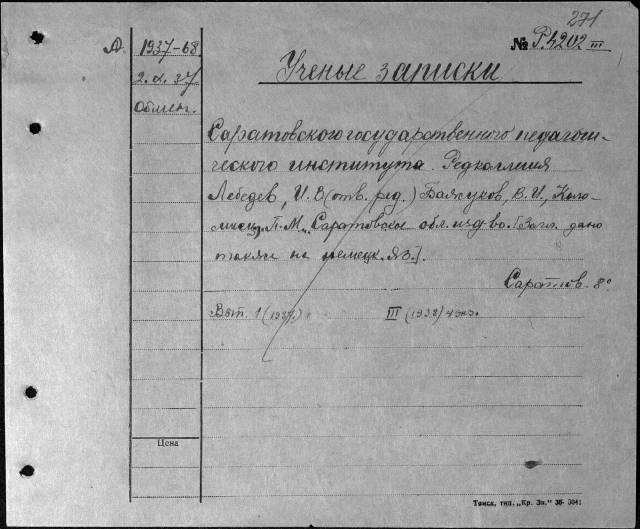 271
А 1937-68 № Р.4202 III
Ученые записки
2.X.37
Обмен.
Саратовского государственного педагоги-
ческого института. Редколлегия
Лебедев, И.В. (отв. ред.) Баясуков, В.И.,
П.М., Саратовское обл. изд-во. [Загл. дано
также на немецк. яз.].
Саратов. 8°
Вып. 1 (1937) III (1938) 4 экз.
Цена
Томск, тип. „Кр. Зн." 36- 3041